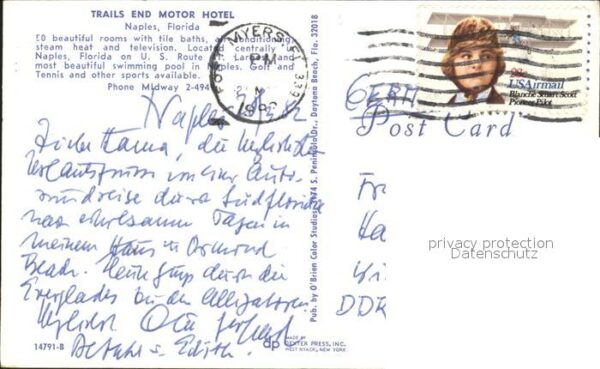 TRAILS END MOTOR HOTEL
Naples, Florida
50 beautiful rooms with tile baths, air conditioning,
steam heat and television. Located centrally in
Naples, Florida on U. S. Route 41. Largest and
most beautiful swimming pool in Naples. Golf and
Tennis and other sports available.
Phone MIdway 2-494
FORT MYERS, FL 339
PM
USAirmail
Blanche Stuart Scott
Pioneer Pilot
Post Card
Naples
Liebe Hanna, die herzlichsten
von einer Auto-
rundreise durch Südflorida
nach erholsamen Tagen in
meinem Haus in Ormond
Beach. Heute ging durch die
Everglades zu den Alligatoren.
Herzlichst
Edith.
Fr
Ha
Wi
DDR
privacy protection
Datenschutz
Pub. by O'Brien Color Studios, 474 S. Peninsula Dr., Daytona Beach, Fla. 32018
14791-B
dp
MADE BY
DEXTER PRESS, INC.
WEST NYACK, NEW YORK